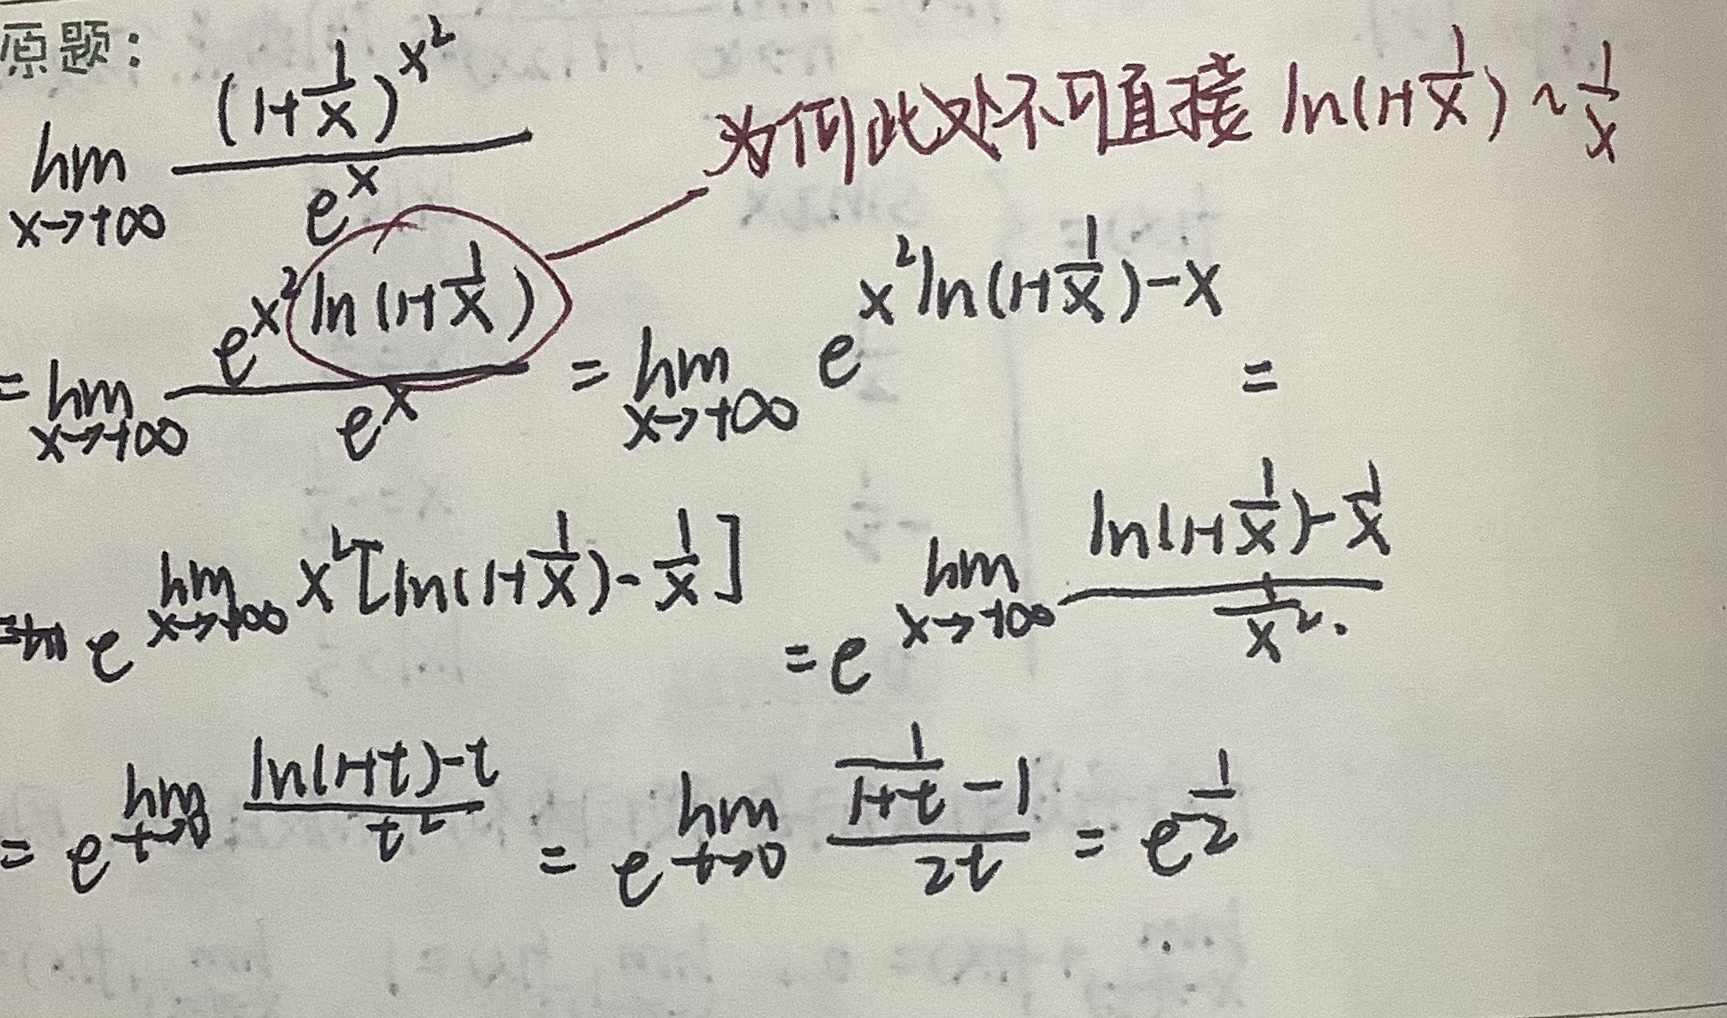 原题：
lim x→+∞ (1+1/x)^x² / e^x
为何此处不可直接 ln(1+1/x) ~ 1/x
= lim x→+∞ e^x² ln(1+1/x) / e^x = lim x→+∞ e^x² ln(1+1/x) - x =
= e^lim x→+∞ x² [ln(1+1/x) - 1/x] = e^lim x→+∞ ln(1+1/x) - 1/x / 1/x².
= e^lim t→0 ln(1+t) - t / t² = e^lim t→0 1/(1+t) - 1 / 2t = e^-1/2